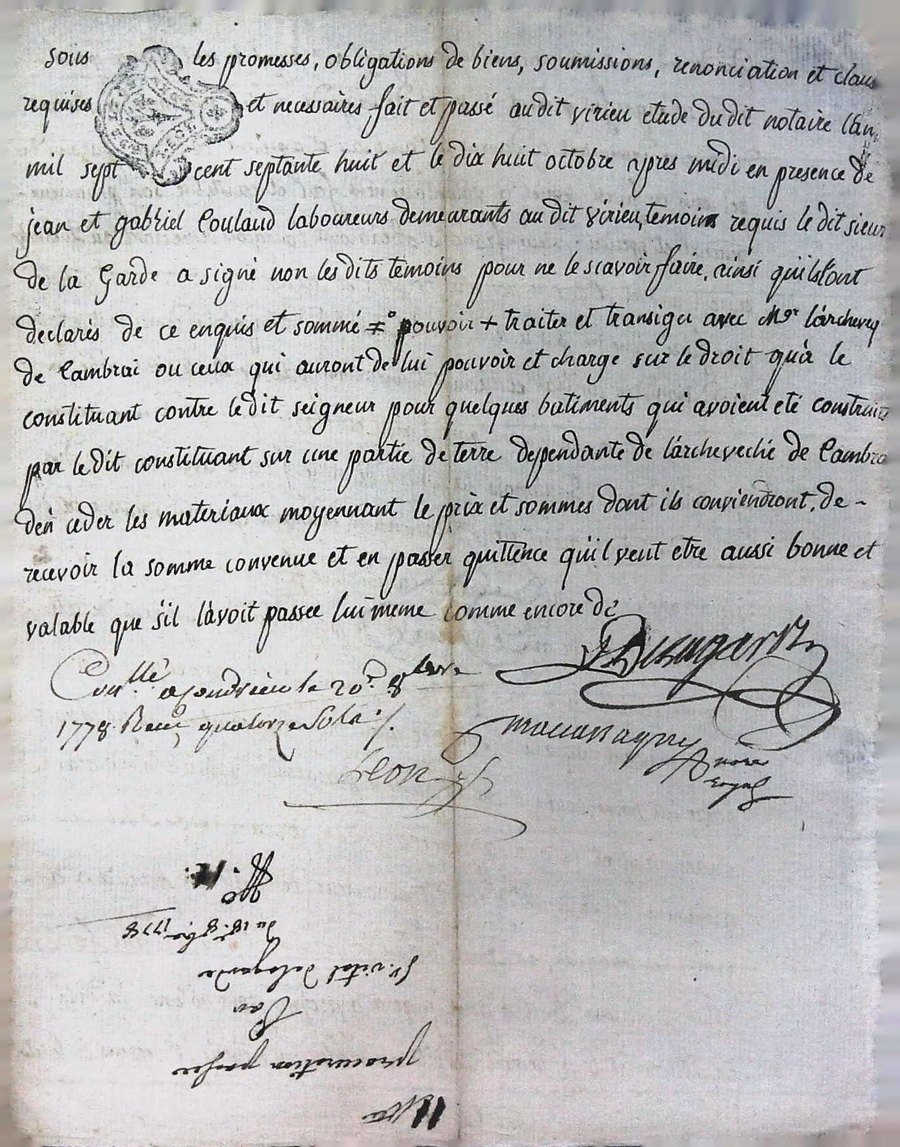 sous les promesses, obligations de biens, soumissions, renonciation et claus
requises et necessaires fait et passé audit virieu etude dudit notaire l'an
mil sept cent septante huit et le dix huit octobre apres midi en presence de
jean et gabriel Coulaud laboureurs demeurants audit virieu, temoins requis le dit sieur
de la Garde a signé non lesdits temoins pour ne le scavoir faire, ainsi qu'ils l'ont
declarés de ce enquis et sommé pouvoir + traiter et transiger avec Mgr l'archeveq
de Cambrai ou ceux qui auront de lui pouvoir et charge sur le droit qu'a le
constituant contre ledit seigneur pour quelques batiments qui avoient eté construits
par ledit constituant sur une partie de terre dependante de l'archeveché de Cambra
d'en ceder les materiaux moyennant le prix et sommes dont ils conviendront, de-
recevoir la somme convenue et en passer quittence qu'il veut etre aussi bonne et
valable que s'il l'avoit passée lui meme comme encore de
Conllé a Condrieu le 20e 8bre
1778. Reçu quatorze sols
nore
royal
procuration passée
Par
Sr. vital delagarde
du 18e 8bre 1778